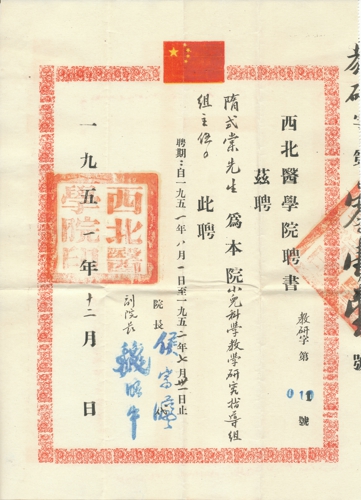 西北醫學院聘書
教研學第 號
茲聘
隋式棠先生為本院小兒科學教學研究指導組
組主任
此聘
聘期:自一九五一年八月一日至一九五二年七月卅一日止
院長
副院長
一九五一年十二月 日
西北醫學院印
教研字第 號